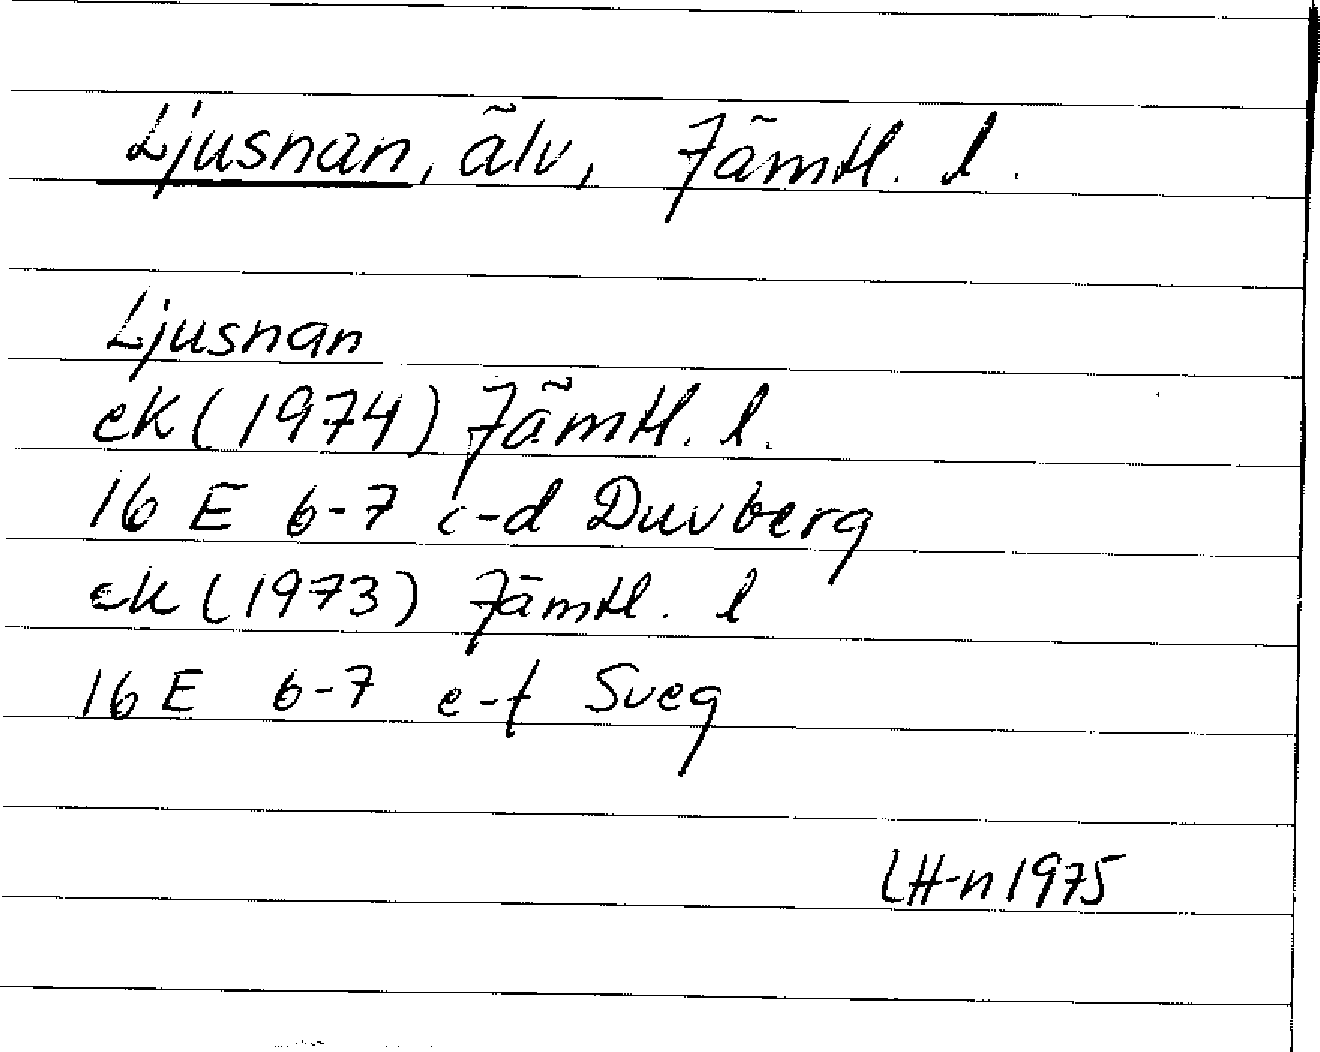 Ljusnan, älv, Jämtl. l.
Ljusnan
ek (1974) Jämtl. l.
16 E 6-7 c-d Duvberg
ek (1973) Jämtl. l
16 E 6-7 e-f Sveg
LH-n 1975